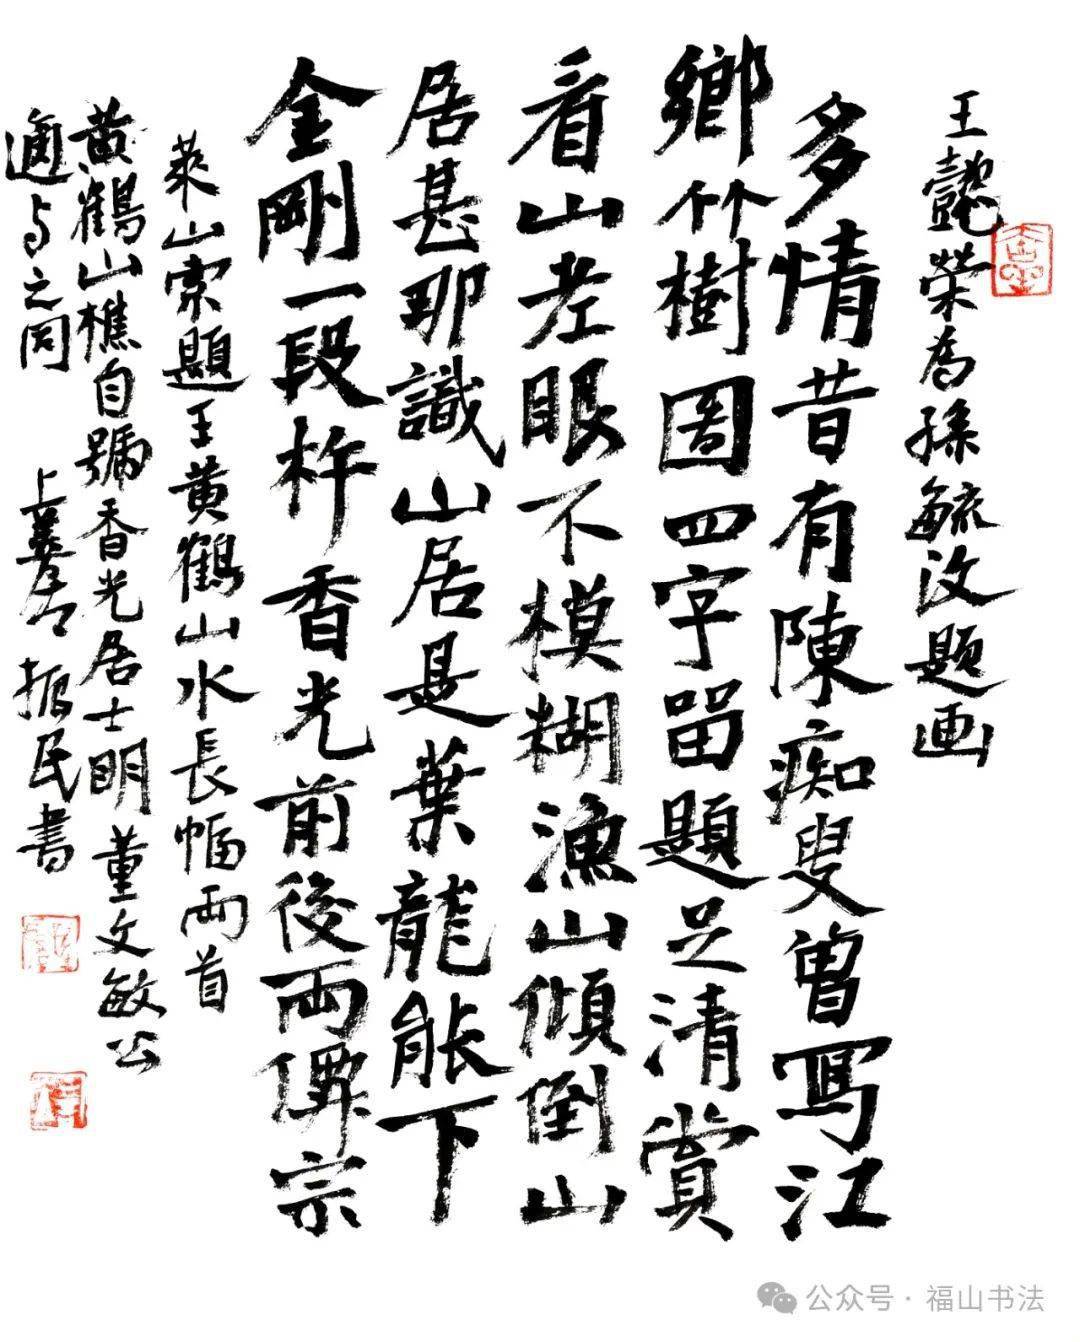 王懿荣為孫毓汶题画
多情昔有陳痴叟曽写江
鄉竹樹图四字畱題足清賞
看山老眼不模糊漁山傾倒山
居甚耶識山居是葉龍能下
金剛一段杵香光前後兩禪宗
萊山索題王黄鶴山水長幅两首
黄鶴山樵自號香光居士明董文敏公
適与之同
振民書
公众号·福山书法